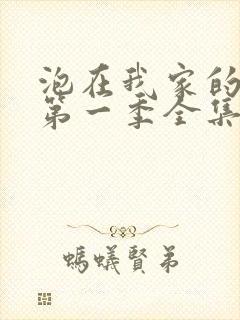 泡在我家的
第一季全集
螞蟻賢弟